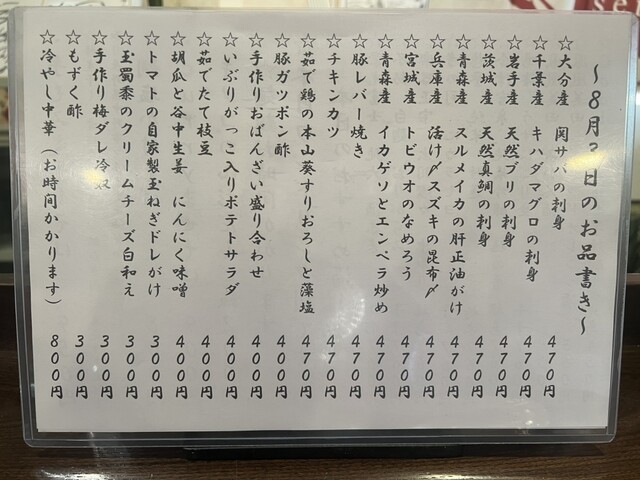 ～8月3日のお品書き～
☆大分産 関サバの刺身 470円
☆千葉産 キハダマグロの刺身 470円
☆岩手産 天然ブリの刺身 470円
☆茨城産 天然真鯛の刺身 470円
☆青森産 スルメイカの肝正油がけ 470円
☆兵庫産 活け〆スズキの昆布〆 470円
☆宮城産 トビウオのなめろう 470円
☆青森産 イカゲソとエンペラ炒め 470円
☆豚レバー焼き 470円
☆チキンカツ 470円
☆茹で鶏の本山葵すりおろしと藻塩 470円
☆豚ガツポン酢 400円
☆手作りおばんざい盛り合わせ 400円
☆いぶりがっこ入りポテトサラダ 400円
☆茹でたて枝豆 400円
☆胡瓜と谷中生姜 にんにく味噌 400円
☆トマトの自家製玉ねぎドレがけ 300円
☆玉蜀黍のクリームチーズ白和え 300円
☆手作り梅ダレ冷奴 300円
☆もずく酢 300円
☆冷やし中華（お時間かかります） 800円